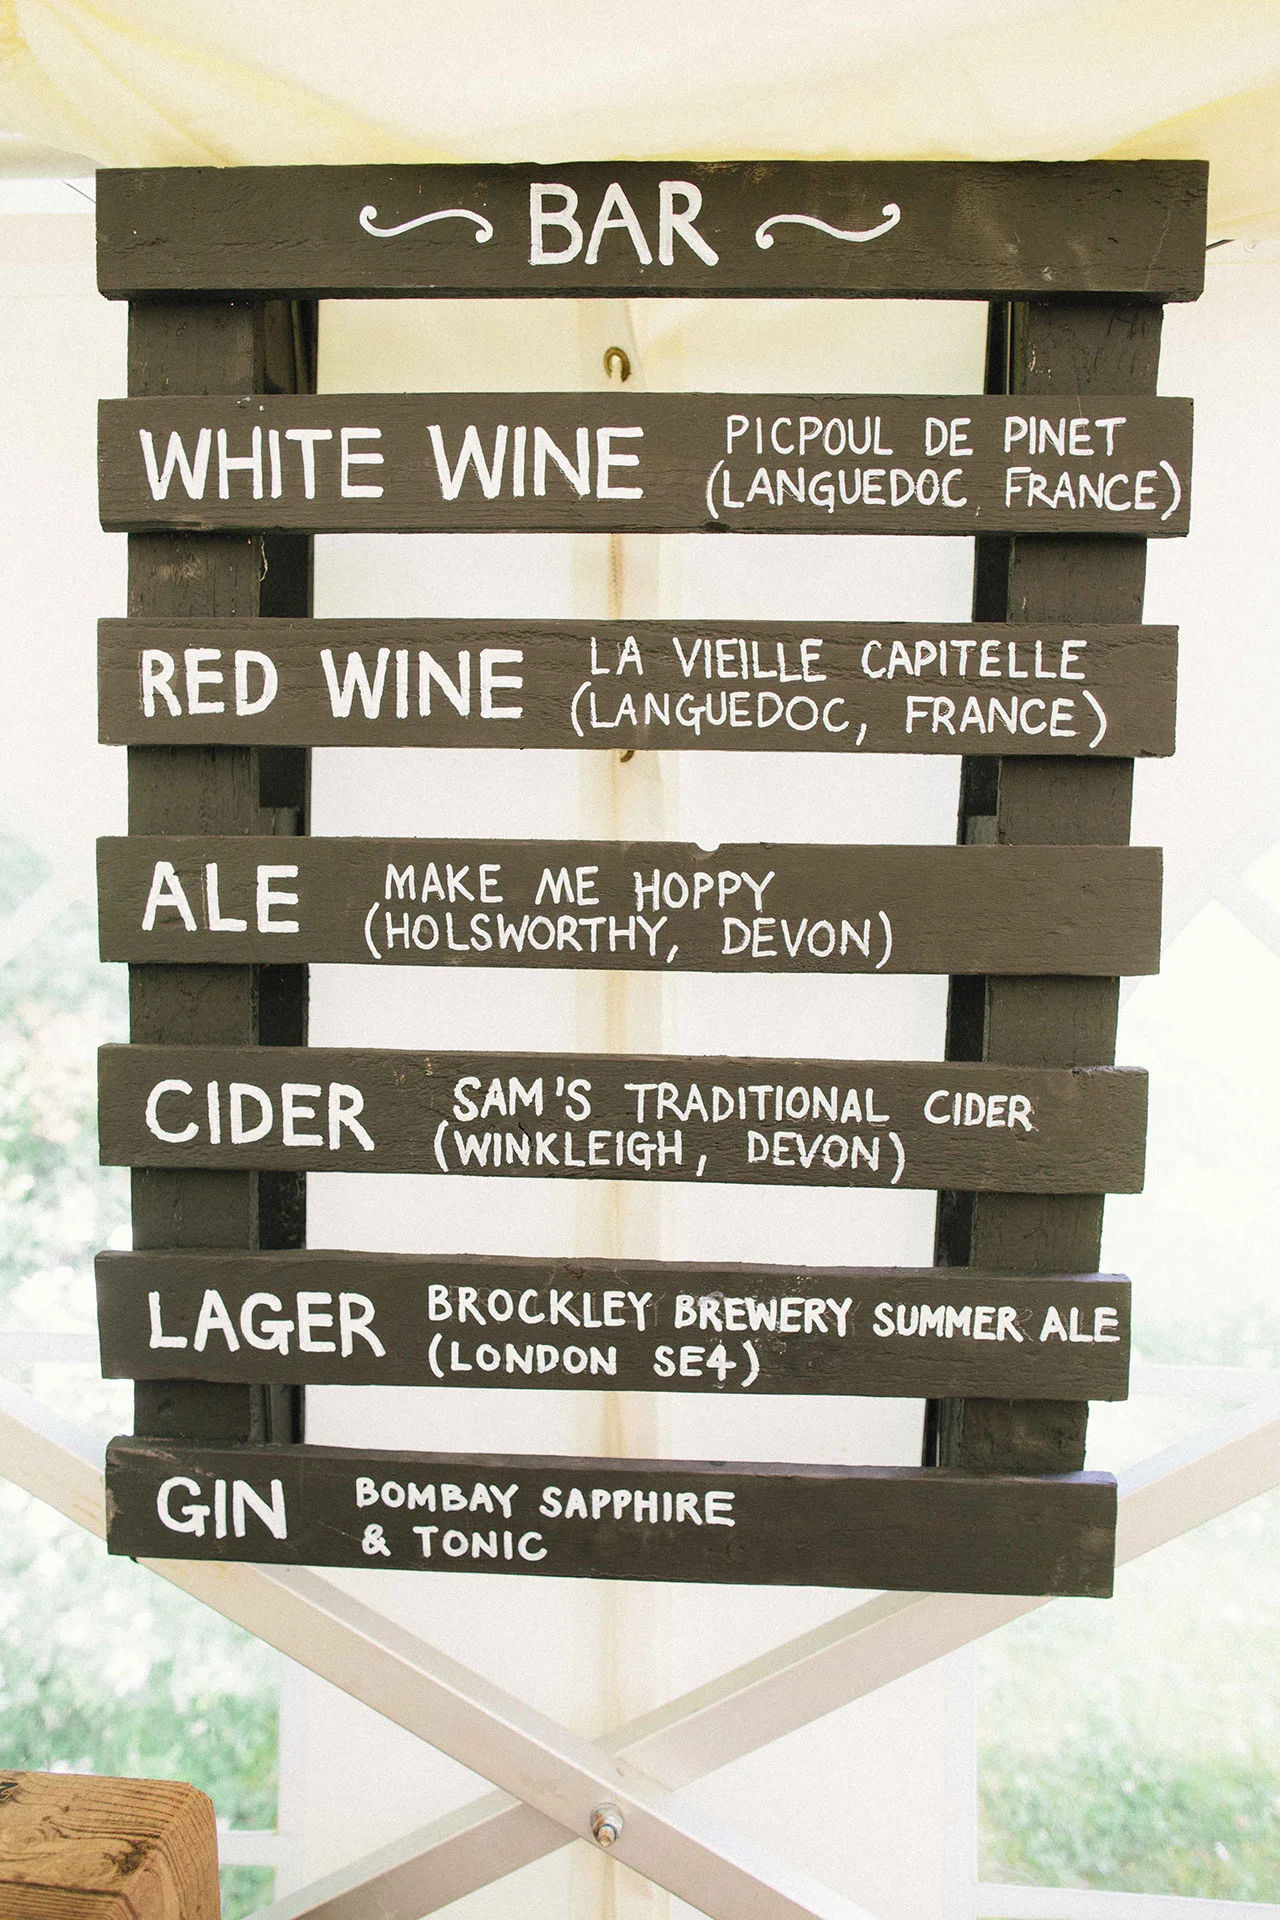 BAR
WHITE WINE PICPOUL DE PINET
(LANGUEDOC, FRANCE)
RED WINE LA VIEILLE CAPITELLE
(LANGUEDOC, FRANCE)
ALE MAKE ME HOPPY
(HOLSWORTHY, DEVON)
CIDER SAM'S TRADITIONAL CIDER
(WINKLEIGH, DEVON)
LAGER BROCKLEY BREWERY SUMMER ALE
(LONDON SE4)
GIN BOMBAY SAPPHIRE
& TONIC